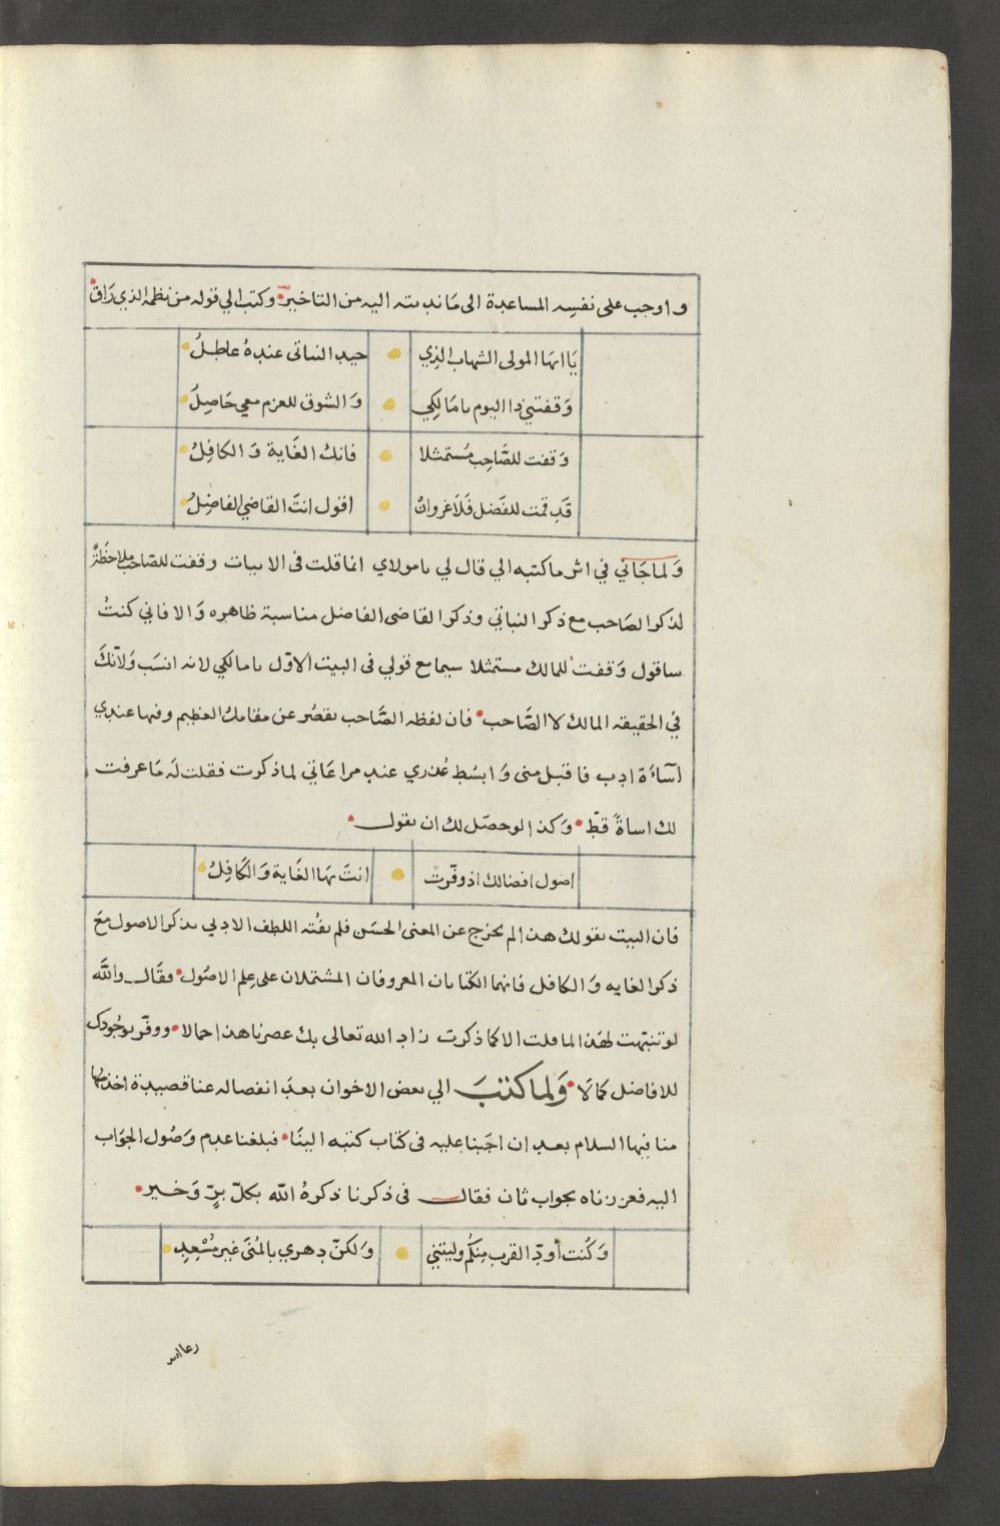 واوجب على نفسِه المساعدة الى مَا ندبته اليه من التاخير وكتب الي قوله من نظمه الذي رَاق
يَا ايها المولى الشهاب الذِي حيد النباتى عندهُ عاطلُ
وَقفتني ذا اليوم يا مَالِكِي وَ الشوق للعزم معي حَاصِلُ
وَقفت للصَّاحِب مُستمثلا فانك الغَاية وَ الكافِلُ
قَد قمت للفَضل فَلَا غروان اقول انتَ القاضِي الفاضِلُ
وَلما جَاني في اثر ما كتبه الي قال لي يا مولاي انما قلت فى الابيات وقفت للصَاحب ملاحَظةً
لذكر الصَاحب مع ذكر النباتي وذكر القاضى الفاضل مناسبة ظاهره وَ الا فاني كنتُ
ساقول وَقفت للمالك مستمثلا سيما مع قولي فى البيت الاوّل يا مالكي لانه انسَب وَلانّكَ
في الحقيقه المالك لا الصَّاحب فان لفظه الصَّاحب تقصُر عن مقامك العظيم وفيها عندي
اسَاءَة ادب فاقبل منى وَ ابسُط عُذري عند مراعَاتي لما ذكرت فقلت لَه مَا عرفت
لك اساةً قطّ وَكذا لو حصَل لك ان تقول
اصول افضالك اذ وفّرتْ انتَ بهَا الغَاية وَ الكَافِلُ
فان البيت بقولك هذا لم يخرج عن المعنى الحسَن فلم يفُته اللطف الادبي بذكر الاصول معَ
ذكر الغايه وَ الكافل فانهما الكتابان المعروفان المشتملان على عِلم الاصُول فقَال والله
لو تنبّهت لهَذا لما قلت الا كما ذكرت زاد الله تعالى بك عصرنا هذا جمالا ووفّر بوجُودك
للافاضل كمالَا وَلما كتبَ الي بعض الاخوان بعدَ انفصاله عنا قصيدة اخذ بها
منا فيها السلام بعد ان اجَبنا عليه فى كتاب كتبه الينَا فبلغنا عدم وَصُول الجوَاب
اليه فعززناه بجواب ثان فقال فى ذكرنا ذكرهُ الله بكلّ برٍّ وَخير
وَكُنت أودّ القرب مِنكُم وليتني وَلكنّ دهري بالمُنَى غير مُسْعِدِ